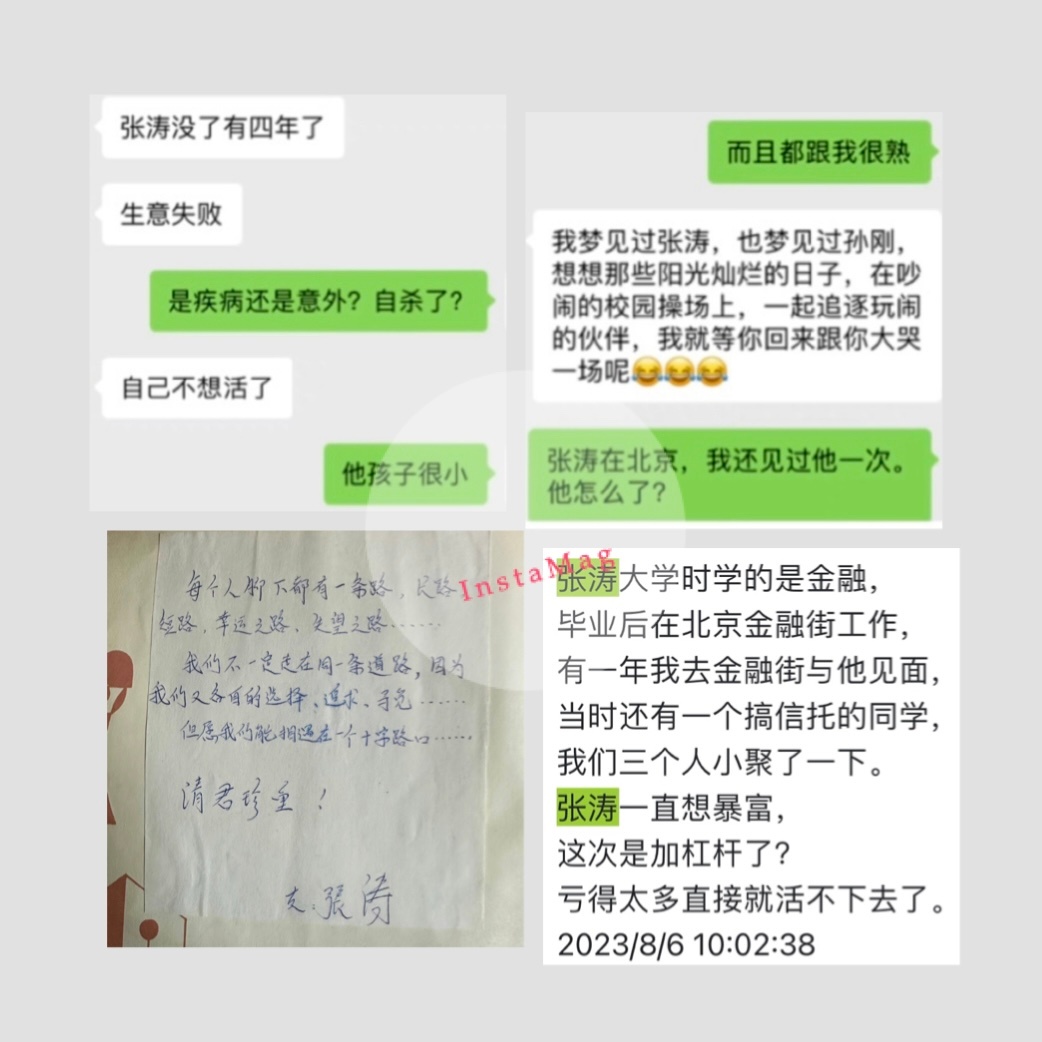 张涛没了有四年了
生意失败
是疾病还是意外？自杀了？
自己不想活了
他孩子很小
而且都跟我很熟
我梦见过张涛，也梦见过孙刚，
想想那些阳光灿烂的日子，在吵
闹的校园操场上，一起追逐玩闹
的伙伴，我就等你回来跟你大哭
一场呢😂😂😂
张涛在北京，我还见过他一次。
他怎么了？
每个人脚下都有一条路，长路
短路，幸运之路、失望之路……
我们不一定走在同一条道路，因为
我们又各自的选择、追求、寻觅……
但愿我们能相遇在一个十字路口……
请君珍重！
友：張涛
InstaMag
张涛大学时学的是金融，
毕业后在北京金融街工作，
有一年我去金融街与他见面，
当时还有一个搞信托的同学，
我们三个人小聚了一下。
张涛一直想暴富，
这次是加杠杆了？
亏得太多直接就活不下去了。
2023/8/6 10:02:38